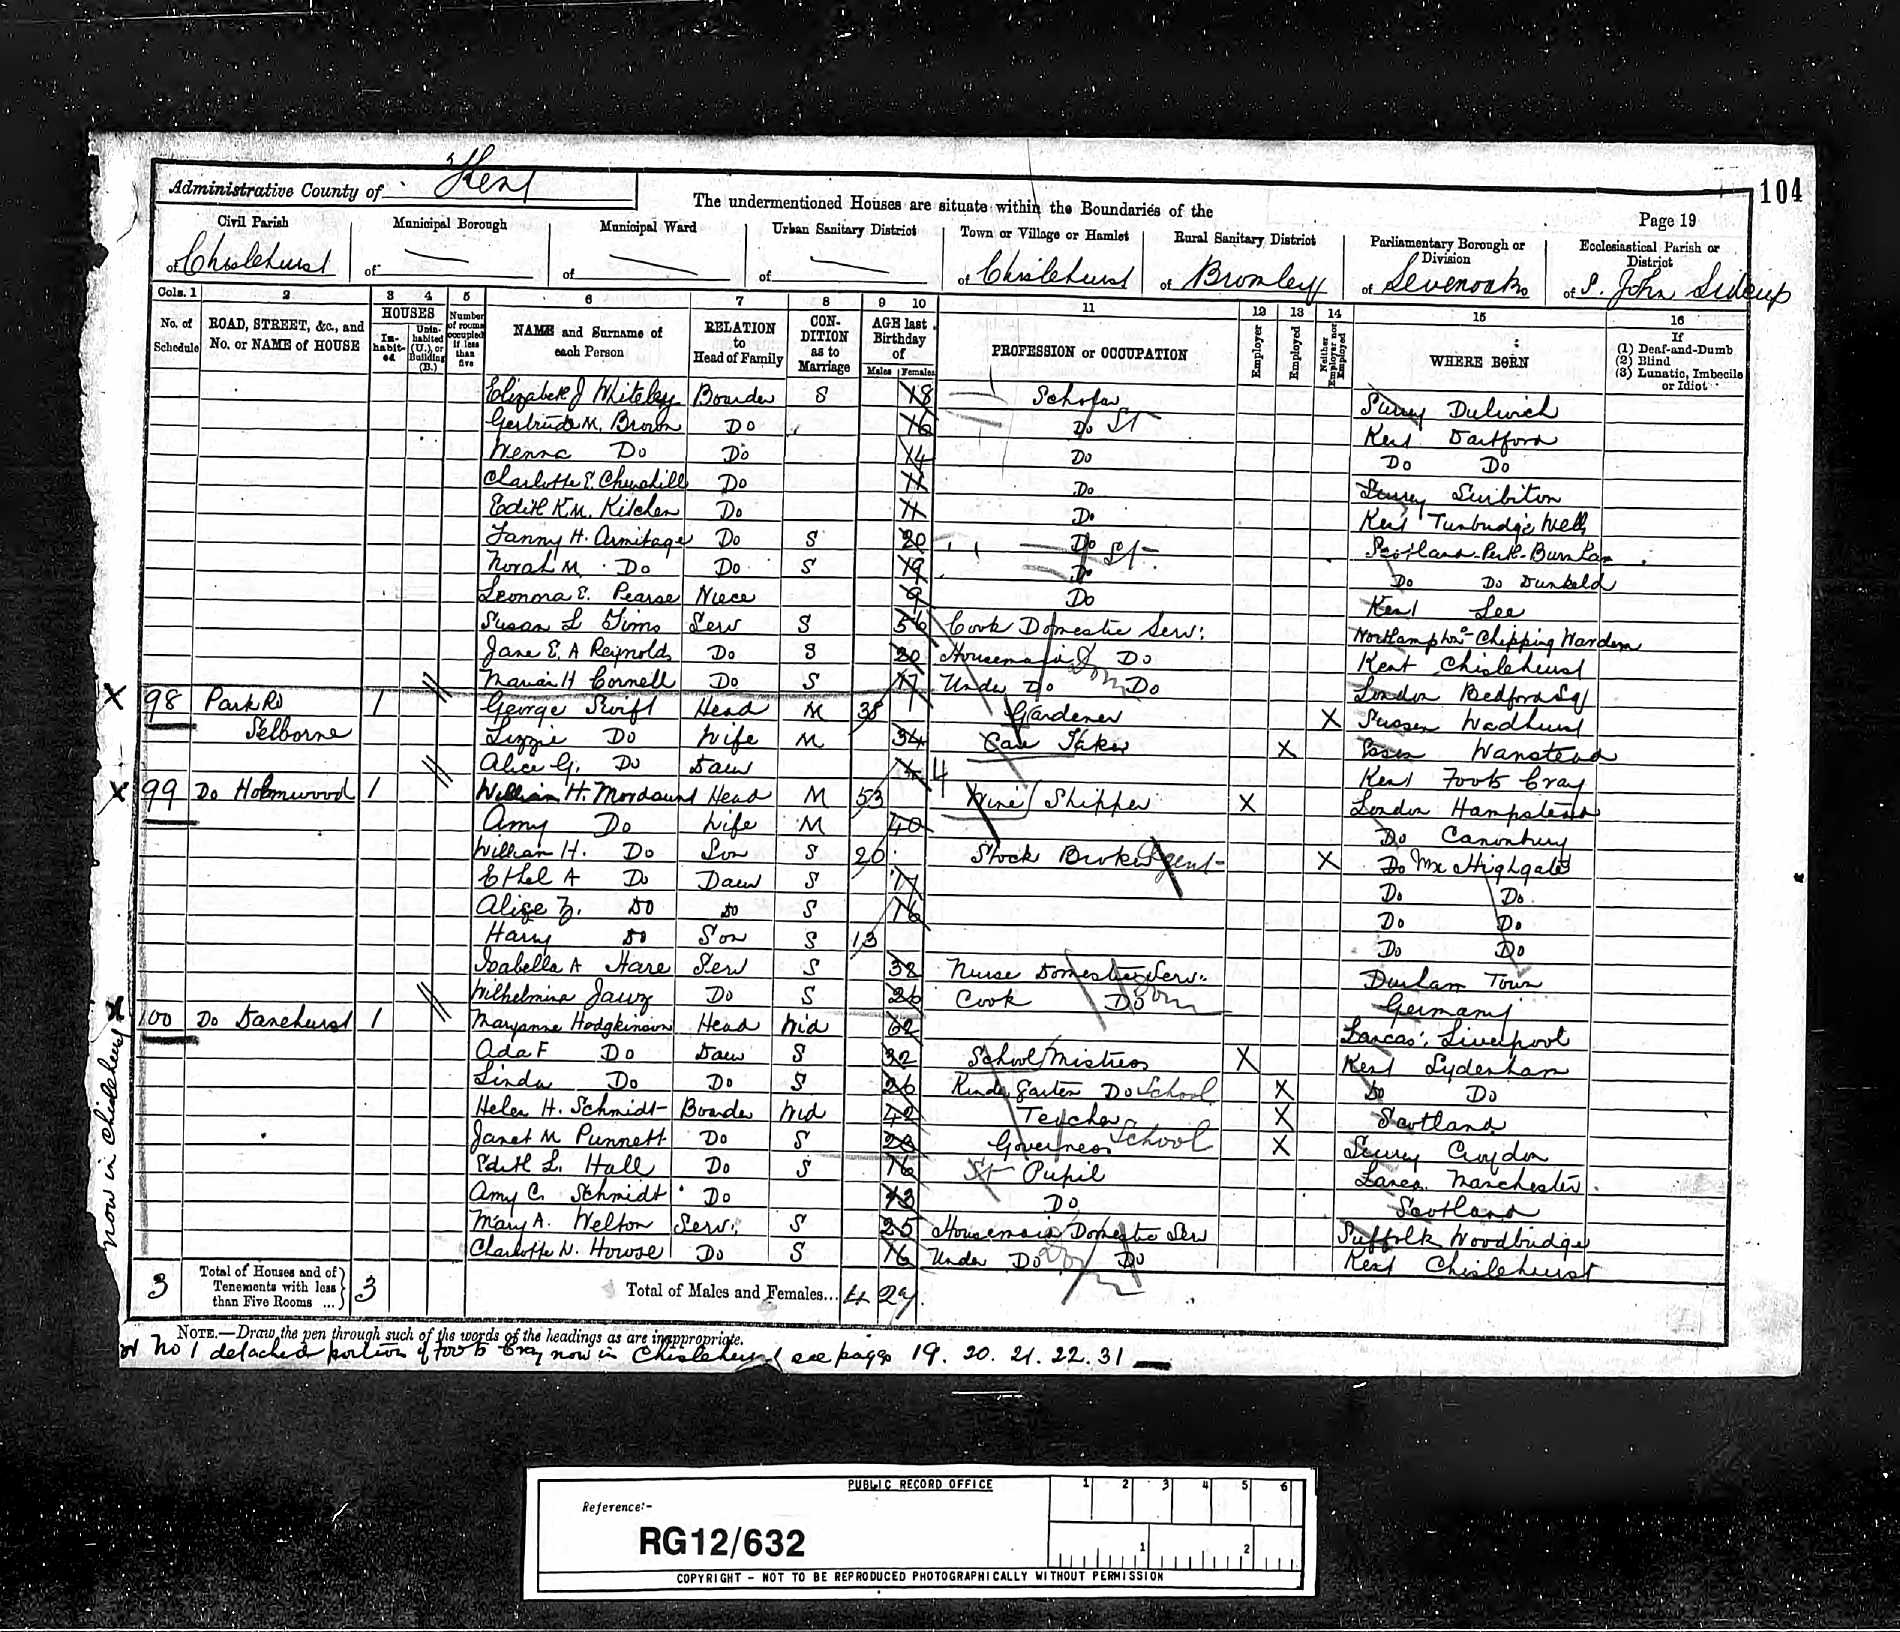 104
Administrative County of Kent
The undermentioned Houses are situate within the Boundaries of the
Page 19
Civil Parish Municipal Borough Municipal Ward Urban Sanitary District Town or Village or Hamlet Rural Sanitary District Parliamentary Borough or Division Ecclesiastical Parish or District
of Chislehurst of of of of Chislehurst of Bromley of Sevenoaks of S. John Sidcup
Cols. 1 2 3 4 5 6 7 8 9 10 11 12 13 14 15 16
No. of Schedule ROAD, STREET, &c., and No. or NAME of HOUSE HOUSES In-habit-ed Unin-habited (U.), or Building (B.) Number of rooms occupied if less than five NAME and Surname of each Person RELATION to Head of Family CON-DITION as to Marriage AGE last Birthday of Males Females PROFESSION or OCCUPATION Employer Employed Neither Employer nor Employed WHERE BORN If (1) Deaf-and-Dumb (2) Blind (3) Lunatic, Imbecile or Idiot
Elizabeth J Whiteley Boarder S 18 Scholar Surrey Dulwich
Gertrude M. Brown Do 16 Do St Kent Dartford
Wenna Do Do 14 Do Do Do
Charlotte E. Churchill Do 11 Do Surrey Surbiton
Edith K.M. Kitchen Do 11 Do Kent Tunbridge Wells
Fanny H. Armitage Do S 20 Do St Scotland Perth Burnham
Norah M. Do Do S 19 Do Do Do Dunkeld
Leonora E. Pearse Niece 9 Do Kent Lee
Susan L Tims Serv S 56 Cook Domestic Serv: Northamptons- Chipping Warden
Jane E. A Reynolds Do S 20 Housemaid Do Kent Chislehurst
Marian H Cornell Do S 17 Under Do Dom Do London Bedford Sq
98 Park Rd 1 George Swift Head M 38 Gardener X Sussex Wadhurst
Selborne Lizzie Do Wife M 34 Care Taker X Essex Wanstead
Alice G. Do Daur 4 Kent Foots Cray
99 Do Holmwood 1 William H. Mordaunt Head M 53 Wine Shipper X London Hampstead
Amy Do Wife M 40 Do Canonbury
William H. Do Son S 20 Stock Broker Agent X Do Mx Highgate
Ethel A Do Daur S 17 Do Do
Alice Z. Do Do S 16 Do Do
Harry Do Son S 13 Do Do
Isabella A Hare Serv S 32 Nurse Domestic Serv. Durham Town
Wilhelmina Do S 26 Cook Do Dom Germany
100 Do Danehurst 1 Maryanne Hodgkinson Head Wid 62 Lancas: Liverpool
Ada F Do Daur S 32 School Mistress X Kent Sydenham
Linda Do Do S 26 Kinder Garten Do School X Do Do
Helen H. Schmidt Boarder Wid 42 Teacher X Scotland
Janet M Punnett Do S 28 Governess School X Surrey Croydon
Edith L. Hall Do S 16 St Pupil Lancs. Manchester
Amy C. Schmidt Do 13 Do Scotland
Mary A. Welton Serv: S 25 Housemaid Domestic Serv Suffolk Woodbridge
Charlotte N. Howse Do S 16 Under Do Dom Do Kent Chislehurst
now in Chislehurst
3 Total of Houses and of Tenements with less than Five Rooms ... 3 Total of Males and Females... 4 27
NOTE.—Draw the pen through such of the words of the headings as are inappropriate.
No 1 detached portion of Foots Cray now in Chislehurst see pages 19. 20. 21. 22. 31
PUBLIC RECORD OFFICE
1 2 3 4 5 6
Reference:-
RG12/632
1 2
COPYRIGHT - NOT TO BE REPRODUCED PHOTOGRAPHICALLY WITHOUT PERMISSION